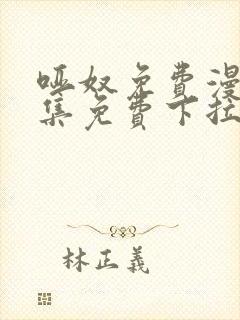 哑奴免费漫
集免费下拉
林正義